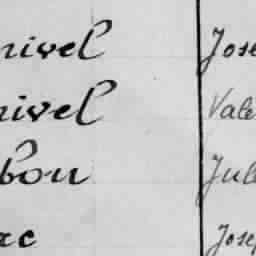 nivel Jose
nivel Vale
bou Jul
rc Josep